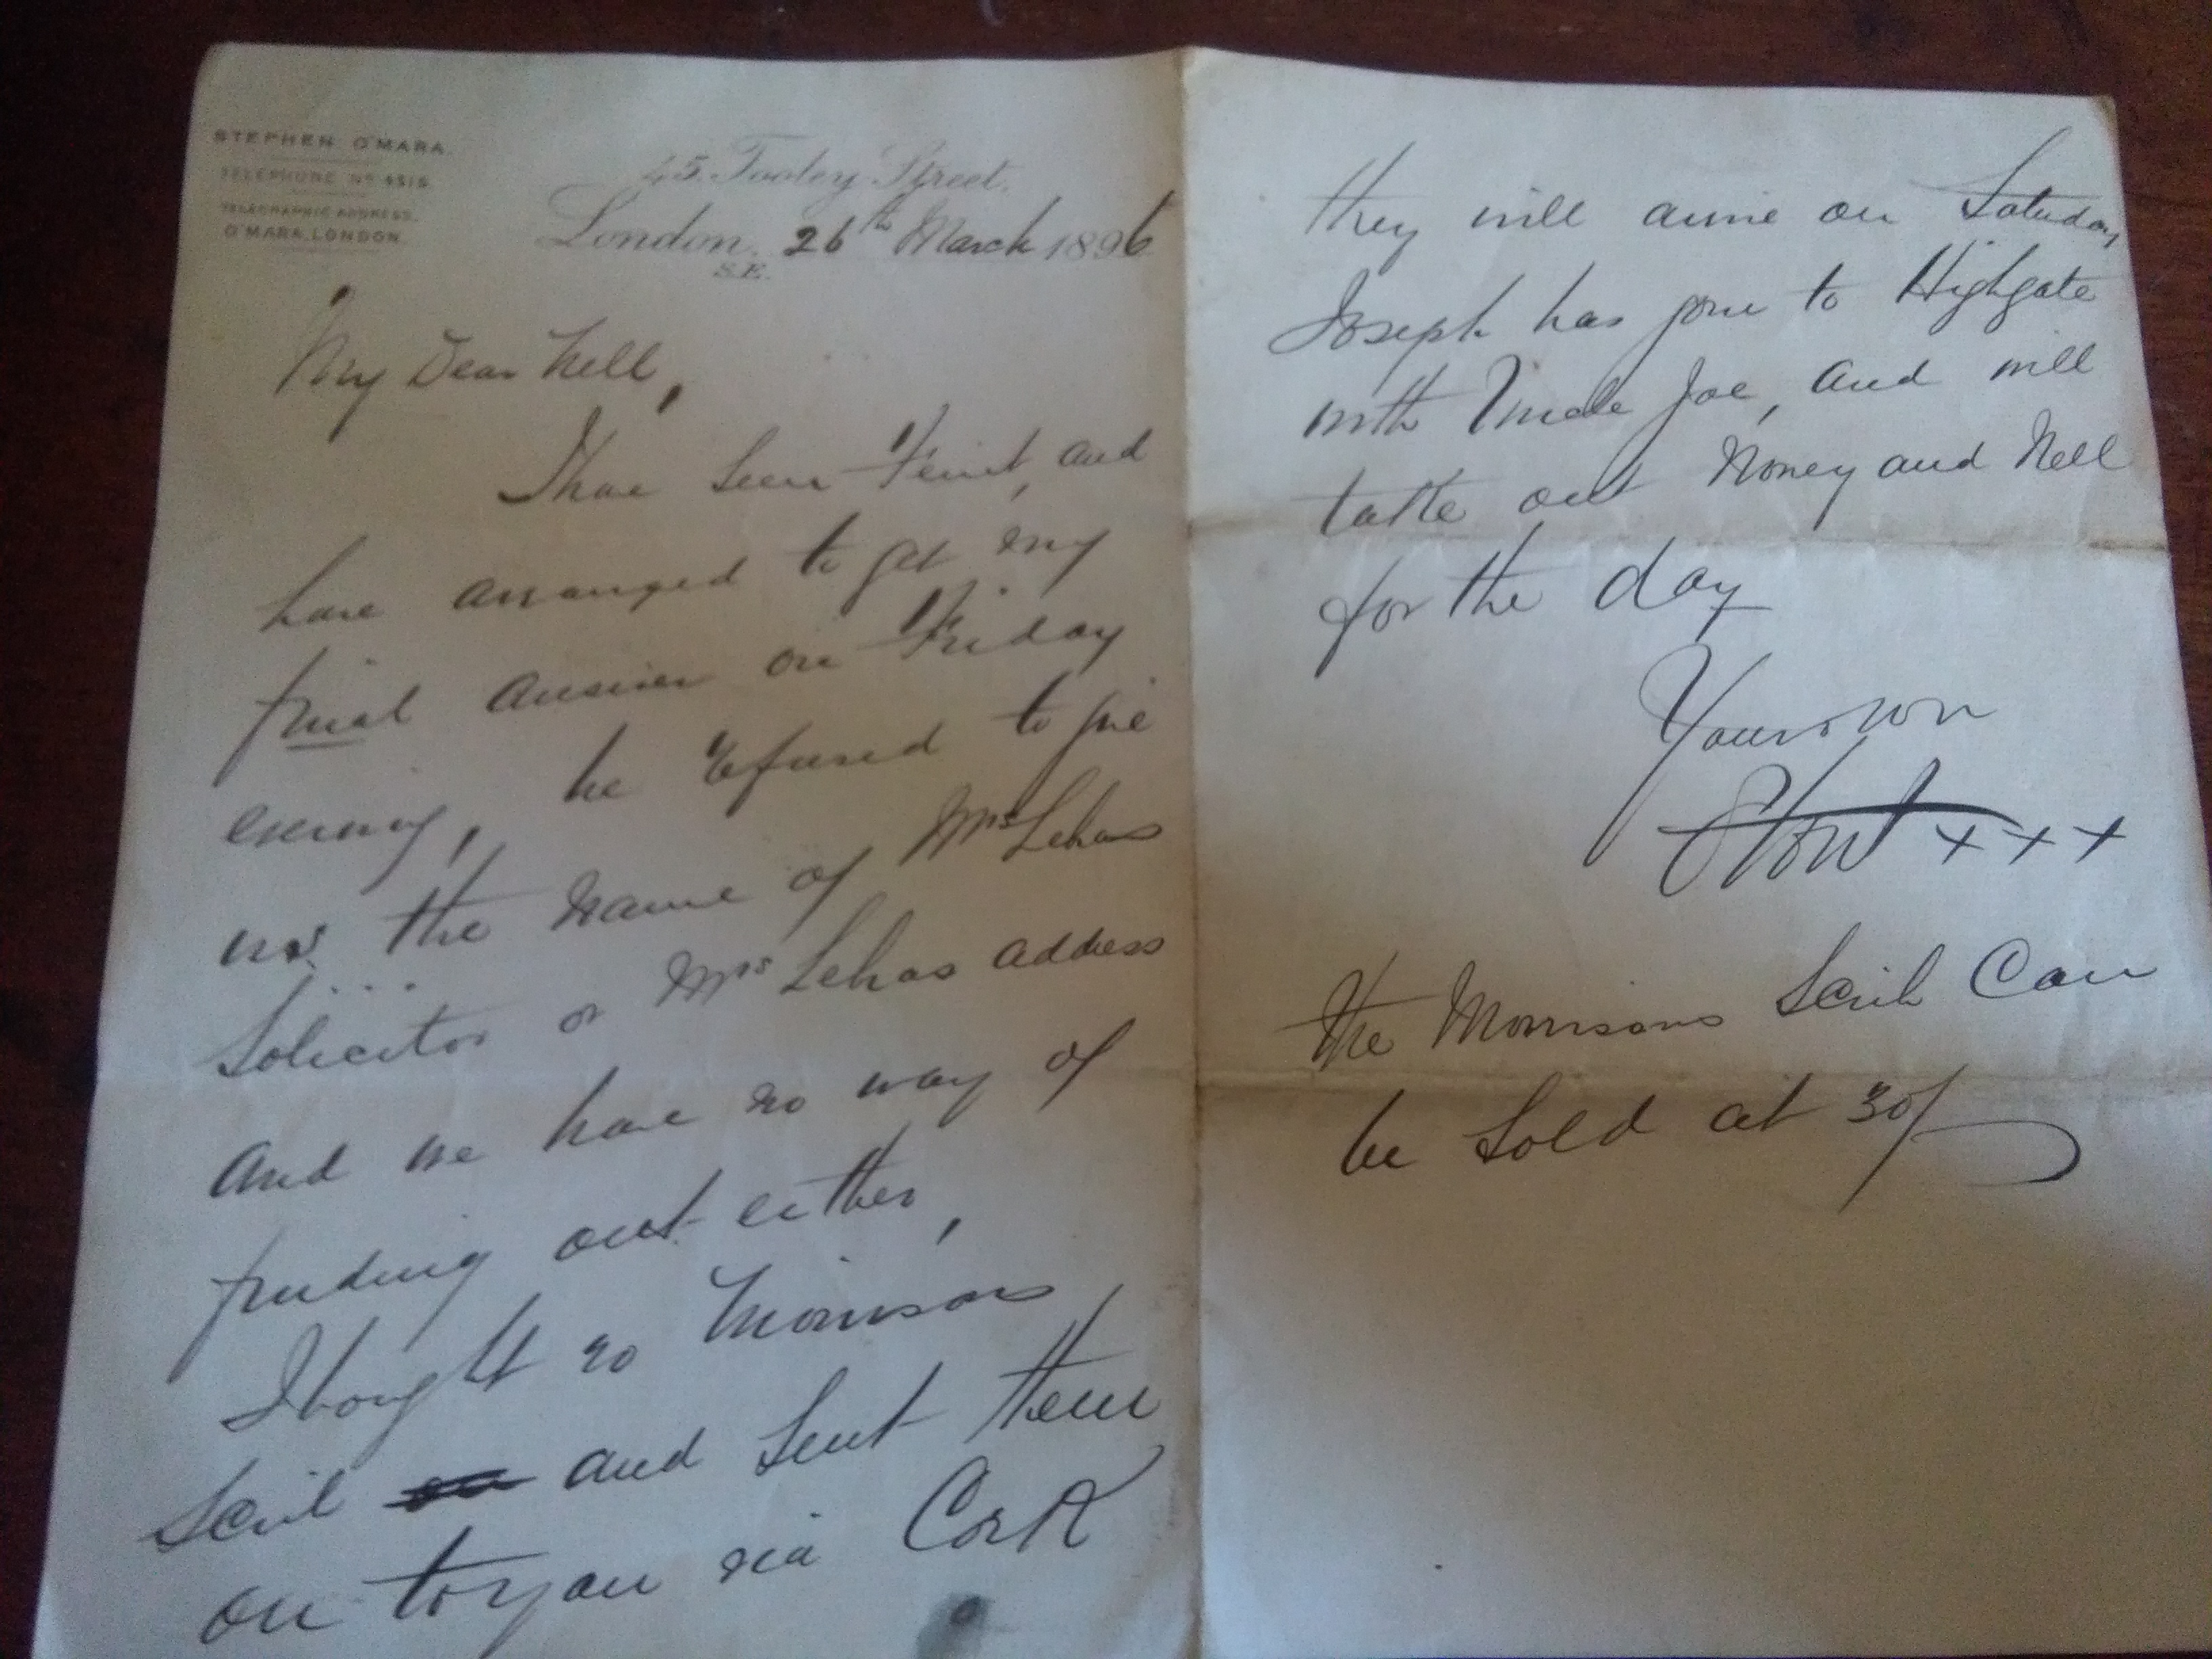 STEPHEN O'MARA.
TELEPHONE No 4516
TELEGRAPHIC ADDRESS.
O'MARA, LONDON.
45. Tooley Street.
London. 26th March 1896
S.E.
My Dear Nell,
I have seen and
have arranged to get my
final answer on Friday
evening, he refused to give
us the name of Mrs
Solicitor or Mrs address
and we have no way of
finding out either,
I bought 20 Morrisons
and sent them
on to you via Cork
they will arrive on Saturday
Joseph has gone to Highgate
with Uncle Joe, and will
take out Noney and Nell
for the day
Your own
x x x
The Morrisons Can
be sold at 30/